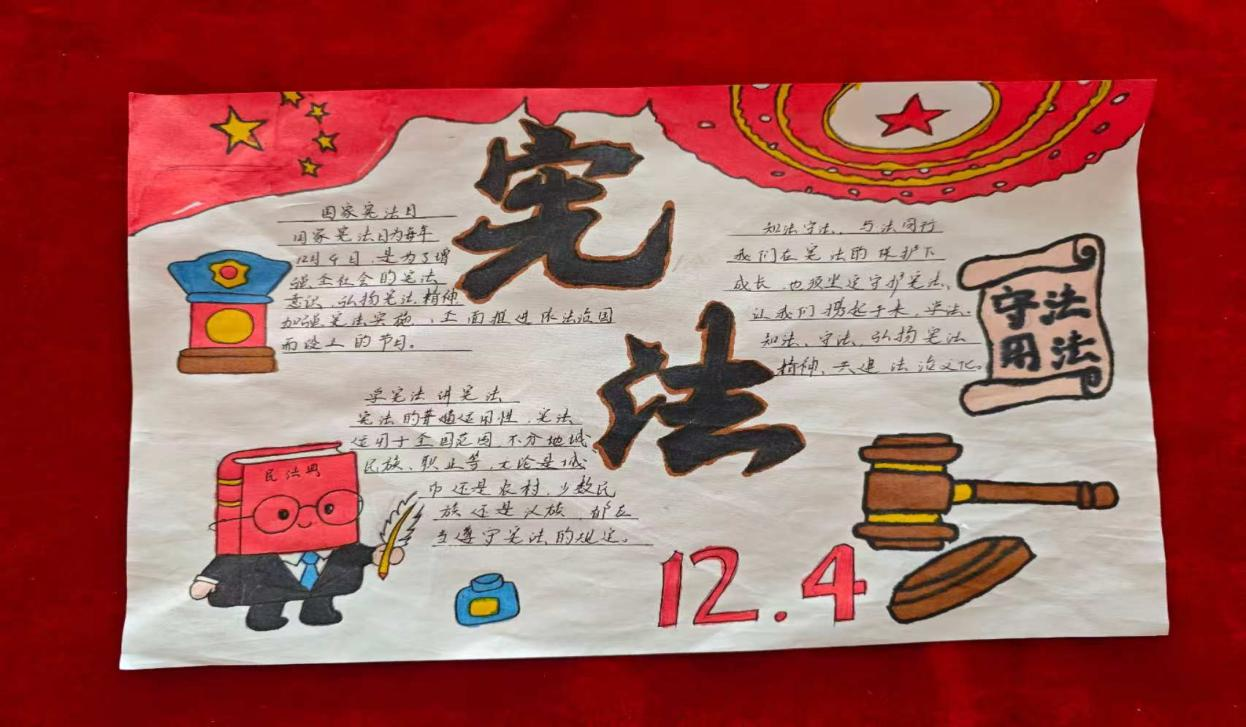 宪
法
国家宪法日
国家宪法日为每年
12月4日,是为了增
强全社会的宪法
意识、弘扬宪法精神
加强宪法实施、全面推进依法治国
而设立的节日。
知法守法、与法同行
我们在宪法的保护下
成长,也须坚定守护宪法、
让我们携起手来,学法、
知法、守法、弘扬宪法
精神、共建法治文化。
守法
用法
学宪法 讲宪法
宪法的普遍适用性,宪法
适用于全国范围,不分地域
民族、职业等,无论是城
市还是农村,少数民
族还是汉族,都应
当遵守宪法的规定。
民法典
12.4